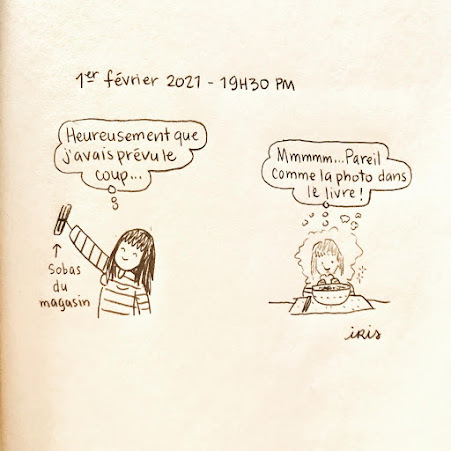 1er février 2021 - 19H30 PM
Heureusement que
j'avais prévu le
coup...
↑
Sobas
du
magasin
Mmmmm...Pareil
comme la photo dans
le livre!
iris